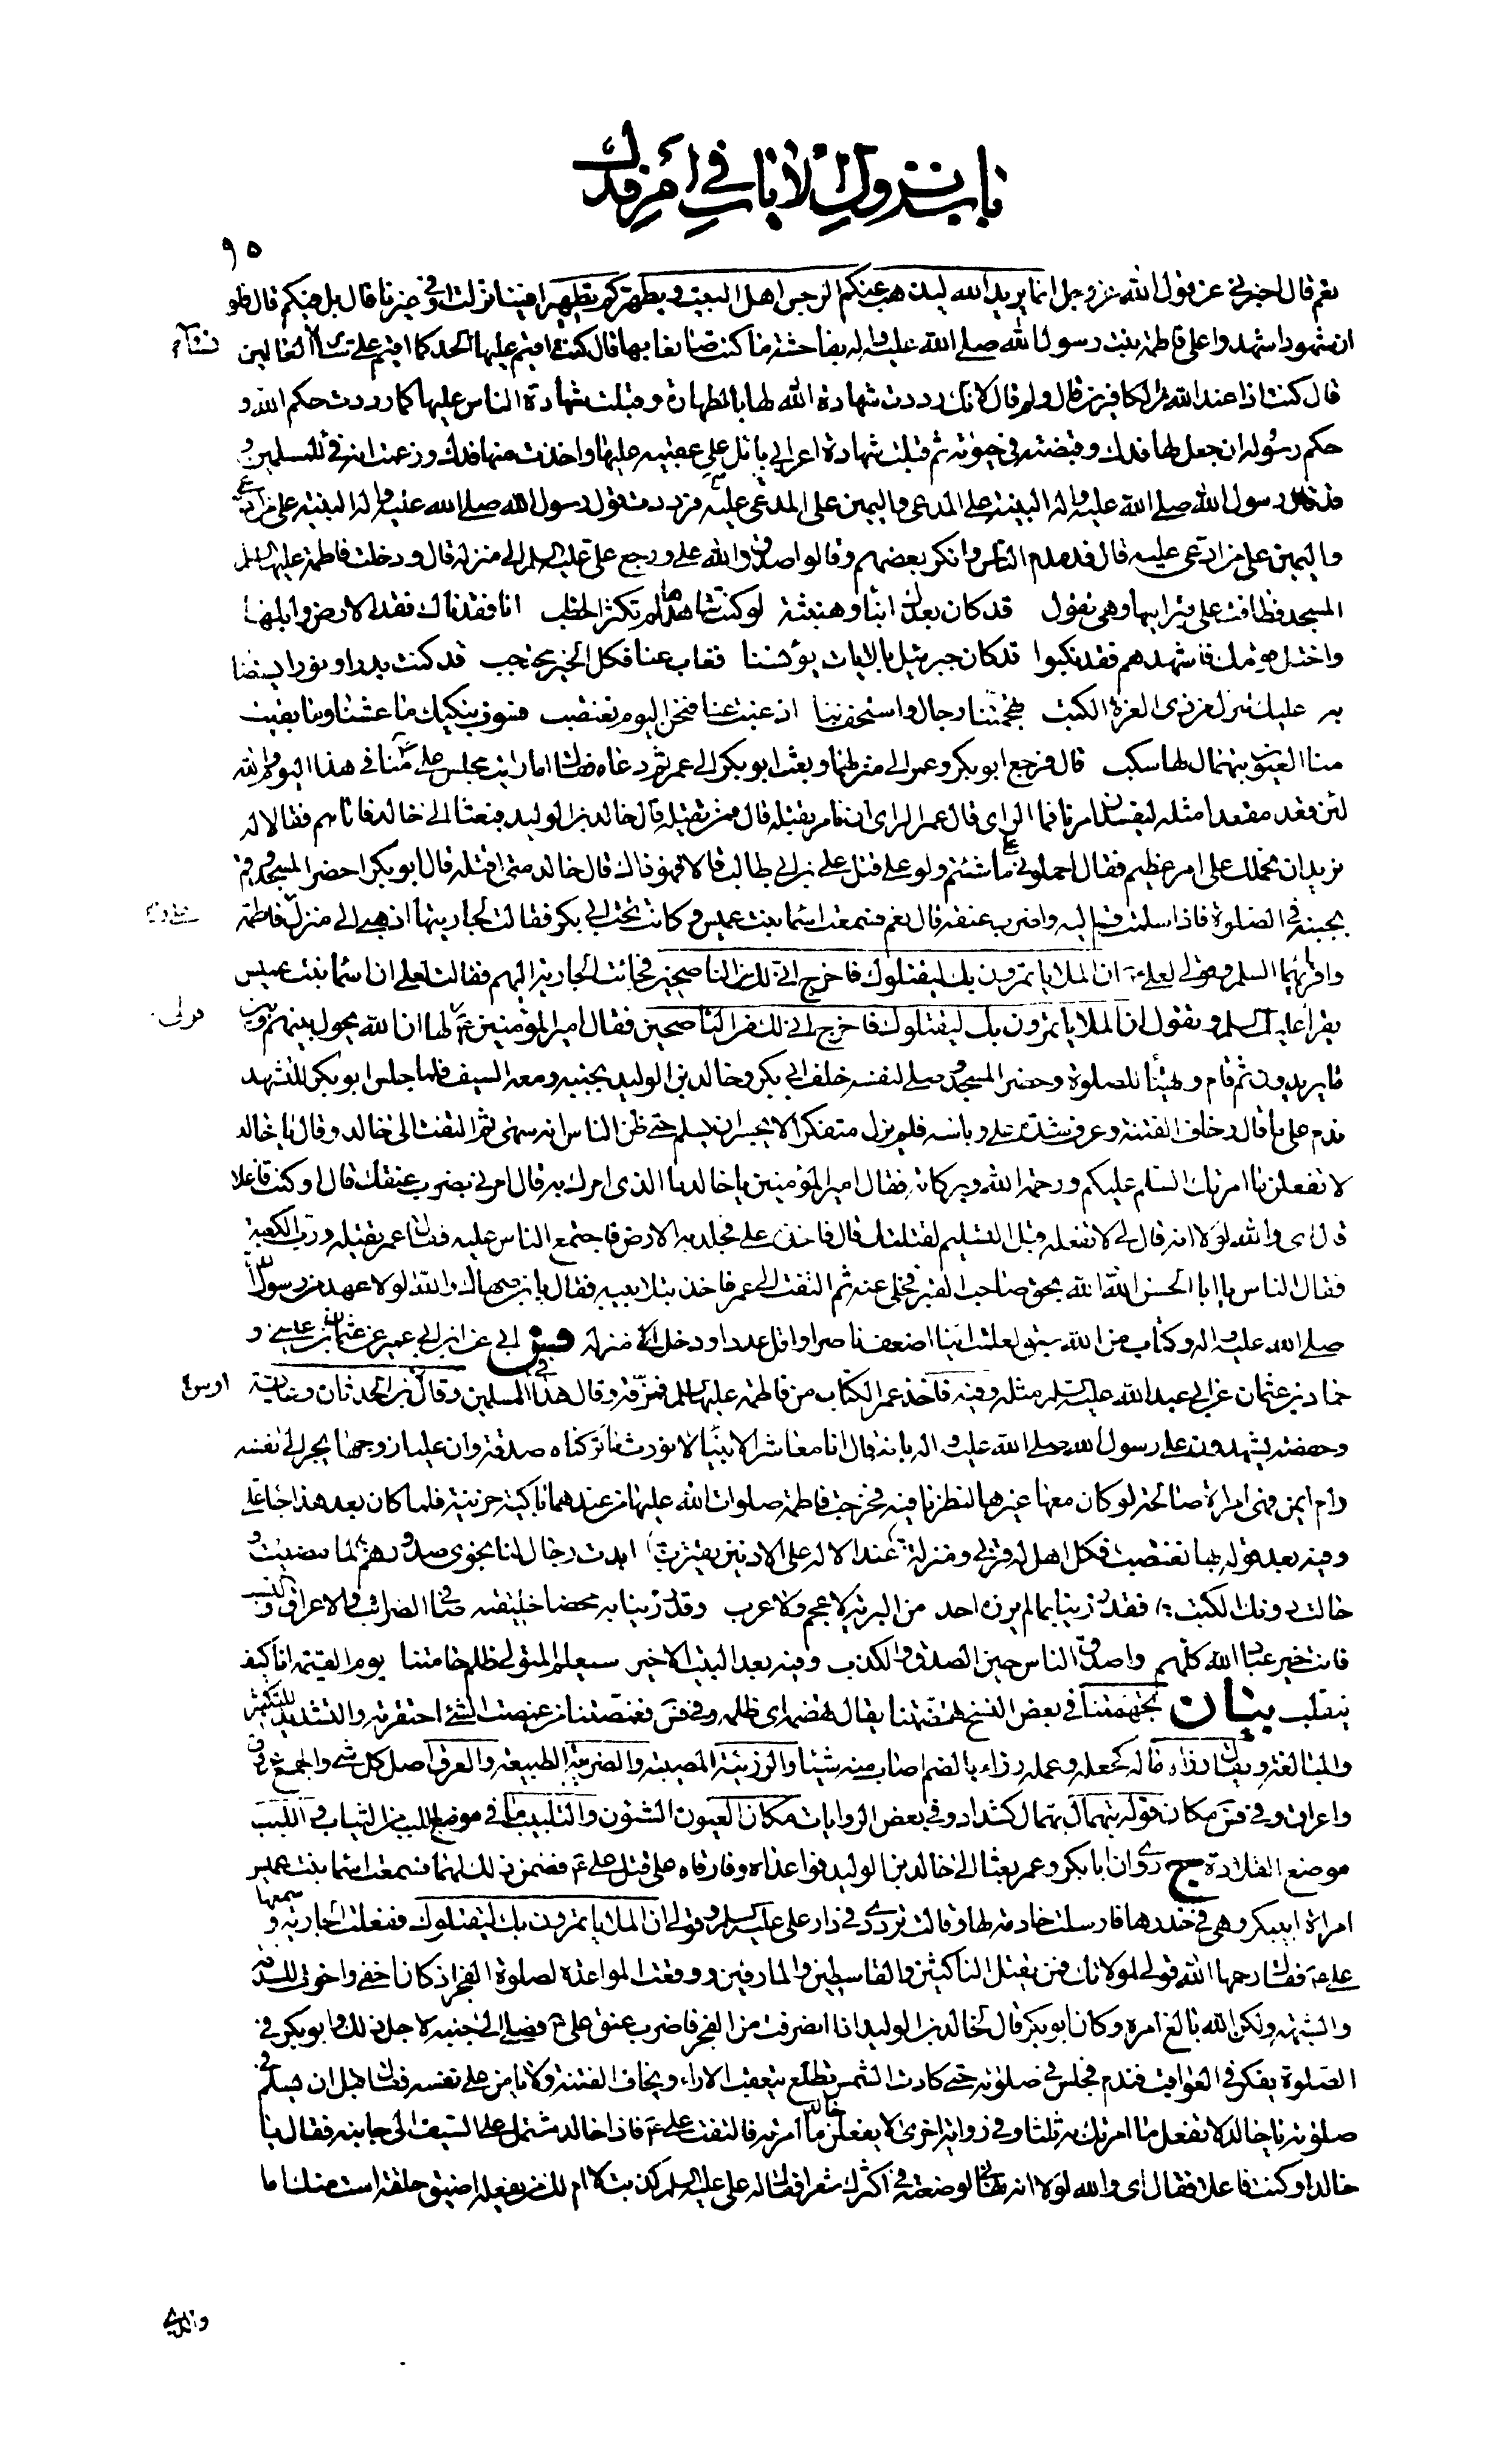 باب نزول الآيات في أمر فدك
٩٥
نعم قال اخبرني عن قول الله عز وجل انما يريد الله ليذهب عنكم الرجس اهل البيت ويطهركم تطهيرا فينا نزلت او في غيرنا قال بل فيكم قال فلو
ان شهودا شهدوا على فاطمة بنت رسول الله صلى الله عليه واله بفاحشة ما كنت صانعا بها قال كنت اقيم عليها الحد كما اقيم على نساء العالمين
قال كنت اذا عند الله من الكافرين قال ولم قال لانك رددت شهادة الله لها بالطهارة وقبلت شهادة الناس عليها كما رددت حكم الله و
حكم رسوله ان جعل لها فدك وقبضته في حيوته ثم قبلت شهادة اعرابي بائل على عقبيه عليها واخذت منها فدك وزعمت انه فئ للمسلمين و
قد قال رسول الله صلى الله عليه واله البينة على المدعي واليمين على المدعى عليه فرددت قول رسول الله صلى الله عليه واله البينة على من ادعى
واليمين على من ادعى عليه قال فدمدم الناس وانكر بعضهم وقالوا صدق والله علي ورجع علي عليه السلم الى منزله قال ودخلت فاطمة عليها السلم
المسجد فطافت على قبر ابيها وهي تقول قد كان بعدك انباء وهنبثة لو كنت شاهدها لم تكثر الخطب انا فقدناك فقد الارض وابلها
واختل قومك فاشهدهم فقد نكبوا قد كان جبريل بالايات يؤنسنا فغاب عنا فكل الخير محتجب قد كنت بدرا ونورا يستضاء
به عليك تنزل من ذي العزة الكتب تجهمتنا رجال واستخف بنا اذ غبت عنا فنحن اليوم نغتصب فسوف نبكيك ما عشنا وما بقيت
منا العيون بتهمال لها سكب قال فرجع ابو بكر وعمر الى منزلهما وبعث ابو بكر الى عمر ثم دعاه فقال اما رايت مجلس علي منا في هذا اليوم والله
لئن قعد مقعدا مثله ليفسدن امرنا فما الراي قال عمر الراي ان نامر بقتله قال فمن يقتله قال خالد بن الوليد فبعثا الى خالد فاتاهم فقالا له
نريد ان نحملك على امر عظيم فقال احملوني على ما شئتم ولو على قتل علي بن ابي طالب قالا فهو ذاك قال خالد متى اقتله قال ابو بكر احضر المسجد وقم
بجنبه في الصلوة فاذا سلمت فقم اليه واضرب عنقه قال نعم فسمعت اسماء بنت عميس وكانت تحت ابي بكر فقالت لجاريتها اذهبي الى منزل علي وفاطمة
واقرئيهما السلم وقولي لعلي ع ان الملا ياتمرون بك ليقتلوك فاخرج اني لك من الناصحين فجائت الجارية اليهم فقالت لعلي ان اسماء بنت عميس
يقرا عليك السلم ويقول ان الملا ياتمرون بك ليقتلوك فاخرج اني لك من الناصحين فقال امير المؤمنين ع قولي لها ان الله يحول بينهم وبين
ما يريدون ثم قام وتهيئا للصلوة وحضر المسجد وصلى لنفسه خلف ابي بكر وخالد بن الوليد بجنبه ومعه السيف فلما جلس ابو بكر للتشهد
ندم على ما قال وخاف الفتنة وعرف شدة علي وباسه فلم يزل متفكرا لا يجسر ان يسلم حتى ظن الناس انه سهى ثم التفت الى خالد وقال يا خالد
لا تفعلن ما امرتك السلم عليكم ورحمة الله وبركاته فقال امير المؤمنين يا خالد ما الذي امرك به قال امرني بضرب عنقك قال او كنت فاعلا
قال اي والله لولا انه قال لي لا تفعله قبل التسليم لقتلتك قال فاخذه علي فجلد به الارض فاجتمع الناس عليه فقال عمر يقتله ورب الكعبة
فقال الناس يا ابا الحسن الله الله بحق صاحب القبر فخلى عنه ثم التفت الى عمر فاخذ بتلابيبه فقال يا بن صهاك والله لولا عهد من رسول الله
صلى الله عليه واله وكتاب من الله سبق لعلمت اينا اضعف ناصرا واقل عددا ودخل الى منزله فس ابي عن ابن ابي عمير عن عثمان بن عيسى و
حماد بن عثمان عن ابي عبد الله عليه السلم مثله وفيه فاخذ عمر الكتاب من فاطمة عليها السلم فمزقه وقال هذا فيء المسلمين وقال اوس بن الحدثان وعايشة
وحفصة يشهدون على رسول الله صلى الله عليه واله بانه قال انا معاشر الانبياء لا نورث ما تركناه صدقة وان عليا زوجها يجر الى نفسه
وام ايمن فهي امراة صالحة لو كان معها غيرها لنظرنا فيه فخرجت فاطمة صلوات الله عليها من عندهما باكية حزينة فلما كان بعد هذا جاء علي
وفيه بعد قوله بها نغتصب فكل اهل له قربى ومنزلة عند الاله على الادنين يقترب ابدت رجال لنا نجوى صدورهم لما مضيت و
حالت دونك الكثب فقد رزينا بما لم يرزه احد من البرية لا عجم ولا عرب وقد رزينا به محضا خليقته صافي الضرائب والاعراق والنسب
فانت خير عباد الله كلهم واصدق الناس حين الصدق والكذب وفيه بعد البيت الاخير سيعلم المتولي ظلم حامتنا يوم القيمة انا كيف
ينقلب بيان تجهمتنا في بعض النسخ تهضمتنا يقال تهضمه اي ظلمه وفي فس فغمصتنا من غمصت الشئ احتقرته والتشديد للتكثير
والمبالغة ويقال رزاه ماله كجعله وعمله رزاء بالضم اصاب منه شيئا والرزيئة المصيبة والضريبة الطبيعة والعرق اصل كل شئ والجمع عروق
واعراق وفي فس مكان قوله بتهمال بهمال كشداد وفي بعض الروايات مكان العيون الشئون والتلبيب ما في موضع اللبب من الثياب واللبب
موضع القلادة ج روي ان ابا بكر وعمر بعثا الى خالد بن الوليد فواعداه وفارقاه على قتل علي ع فضمن ذلك لهما فسمعت اسماء بنت عميس
امراة ابيبكر وهي في خدرها فارسلت خادمة لها وقالت ترددي في دار علي عليه السلم وقولي ان الملا ياتمرون بك ليقتلوك ففعلت الجارية وسمعها
علي ع فقال رحمها الله قولي لمولاتك فمن يقتل الناكثين والقاسطين والمارقين ووقعت المواعدة لصلوة الفجر اذ كان اخفى واخوت للسدفة
والشبهة ولكن الله بالغ امره وكان ابو بكر قال لخالد بن الوليد اذا انصرفت من الفجر فاضرب عنق علي ع فصلى الى جنبه لاجل ذلك وابو بكر في
الصلوة يفكر في العواقب فندم فجلس في صلوته حتى كادت الشمس تطلع يتعقب الاراء ويخاف الفتنة ولا يامن على نفسه فقال قبل ان يسلم في
صلوته يا خالد لا تفعل ما امرتك به ثلثا وفي رواية اخرى لا يفعلن خالد ما امر به فالتفت علي ع فاذا خالد مشتمل على السيف الى جانبه فقال يا
خالد او كنت فاعلا فقال اي والله لولا انه نهاني لوضعته في اكثرك شعرا فقال له علي عليه السلم كذبت لا ام لك من يفعله اضيق حلقة است منك اما
والذي